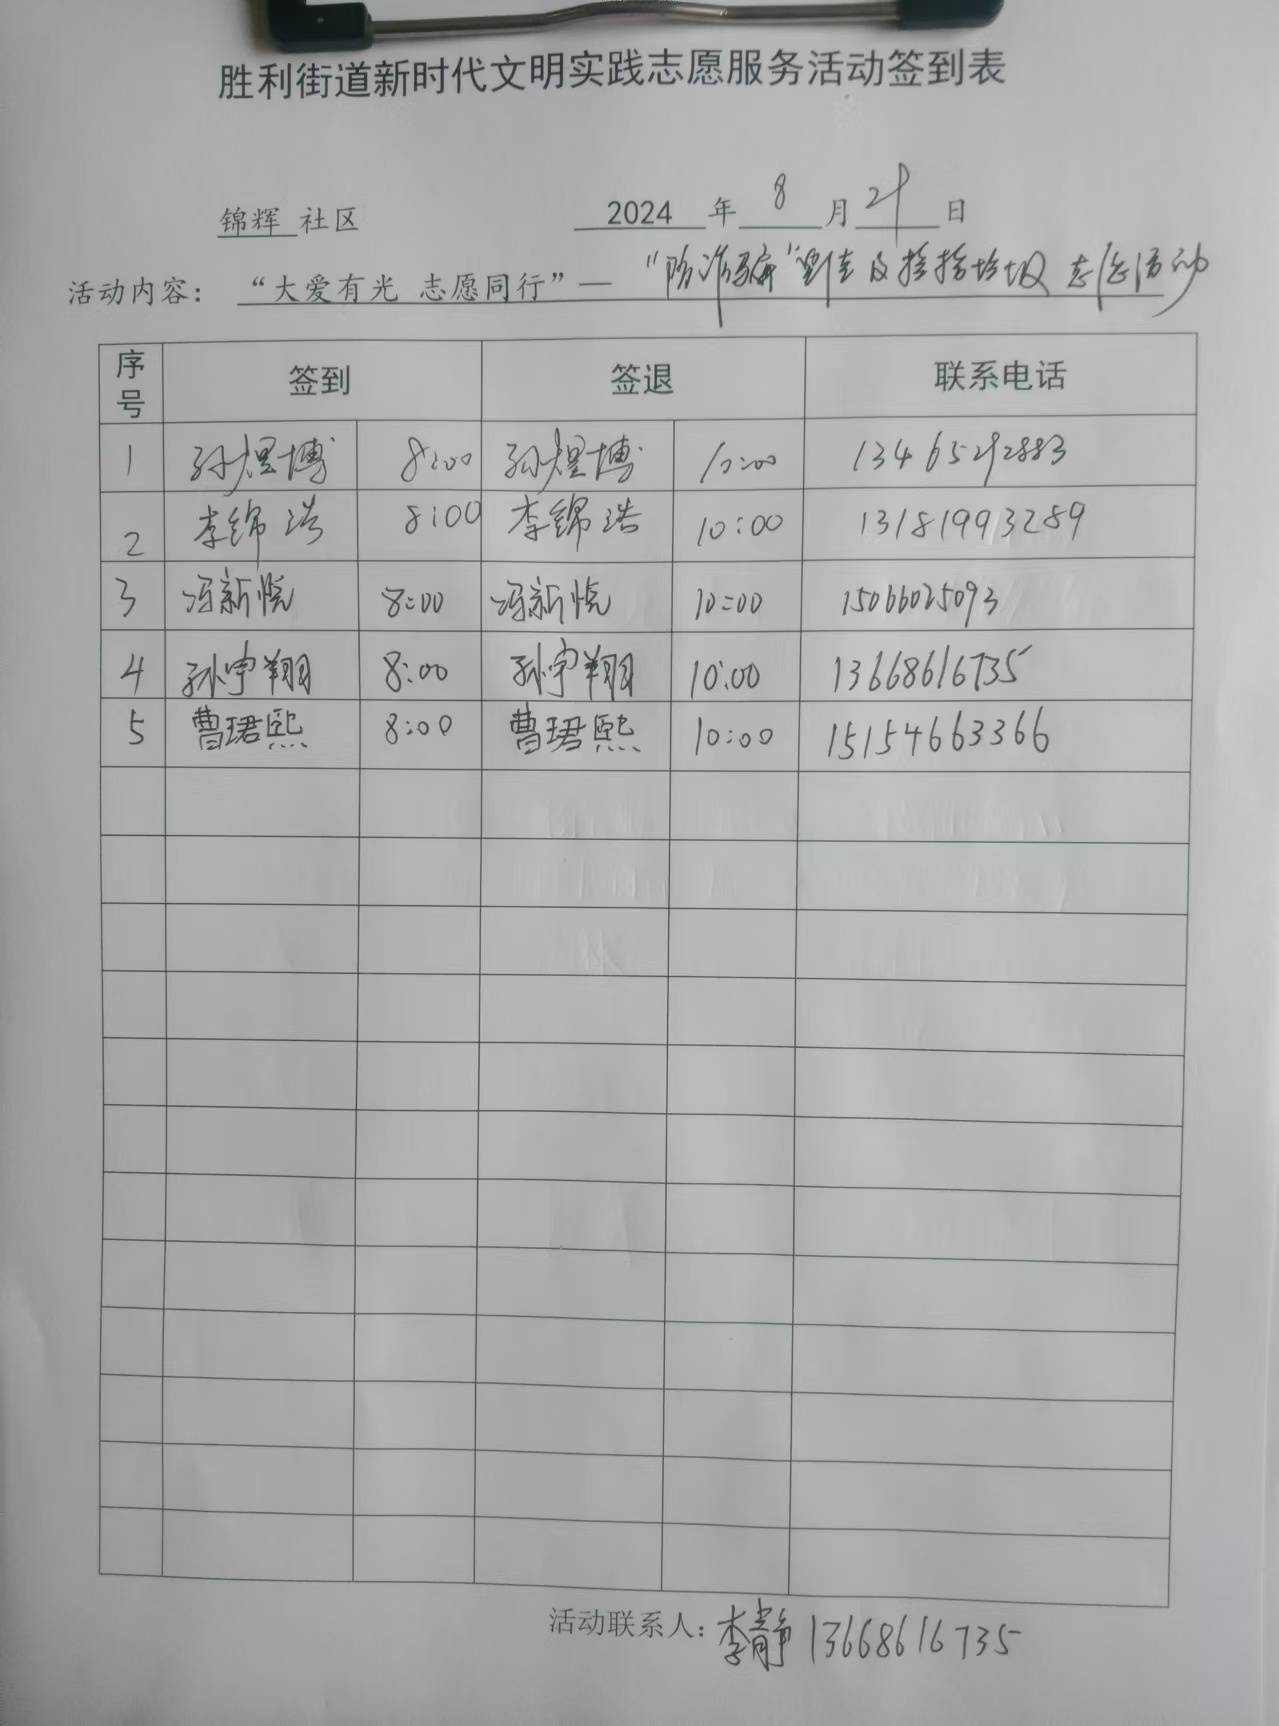 胜利街道新时代文明实践志愿服务活动签到表
锦辉 社区 2024 年 8 月 21 日
活动内容： “大爱有光 志愿同行”— “防诈骗”宣传及捡拾垃圾志愿活动
序号 签到 签退 联系电话
1 孙煜博 8:00 孙煜博 10:00 13465292883
2 李锦浩 8:00 李锦浩 10:00 13181993289
3 冯新悦 8:00 冯新悦 10:00 15066025093
4 孙宇翔 8:00 孙宇翔 10:00 13668616735
5 曹珺熙 8:00 曹珺熙 10:00 15154663366
活动联系人：李静 13668616735